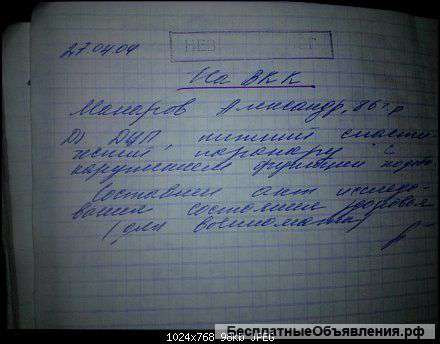 27.04.04
На ВКК
Макаров Александр, 86 г.р
D) ДЦП, нижний спасти
ческий парапарез с
нарушением функции ходьбы
Составлен акт исследо
вания состояния здоровья
(для военкомата)
1024x768 96kb JPEG
БесплатныеОбъявления.рф